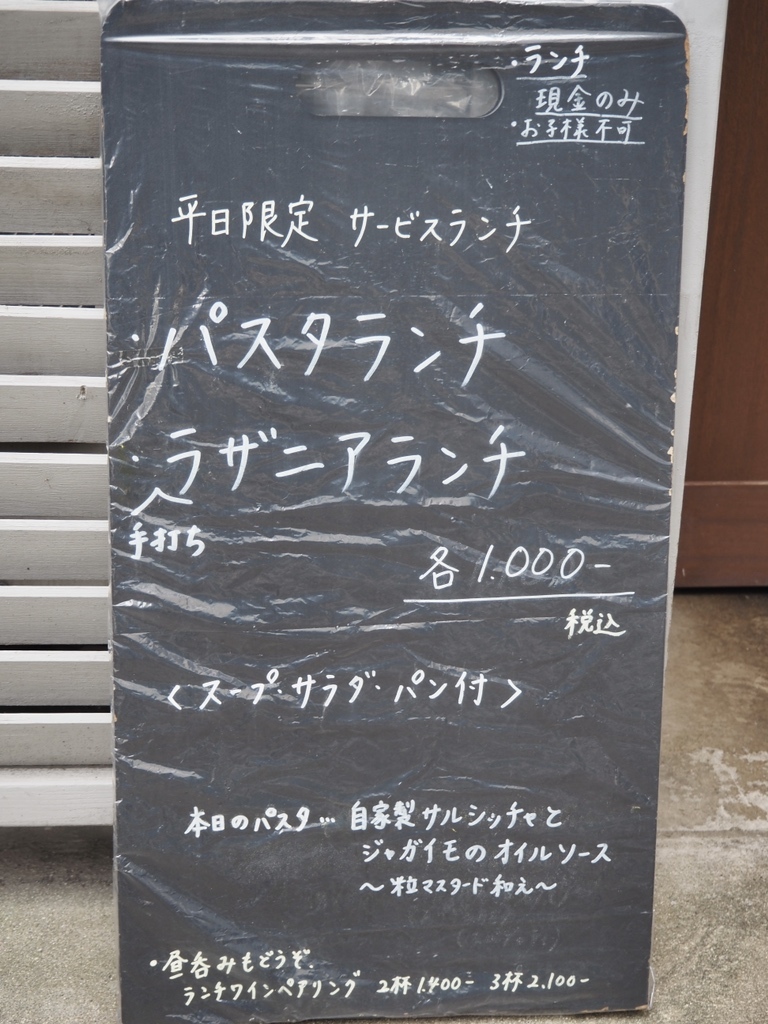 ・ランチ
現金のみ
・お子様不可
平日限定 サービスランチ
・パスタランチ
・ラザニアランチ
手打ち
各1.000-
税込
〈スープ・サラダ・パン付〉
本日のパスタ… 自家製サルシッチャと
ジャガイモのオイルソース
〜粒マスタード和え〜
・昼呑みもどうぞ。
ランチワインペアリング 2杯1.400- 3杯2.100-